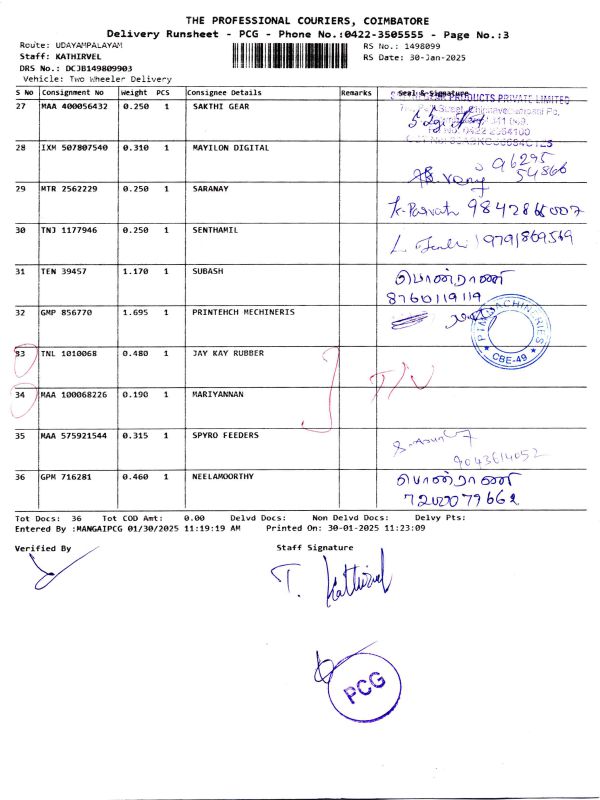 THE PROFESSIONAL COURIERS, COIMBATORE
Delivery Runsheet - PCG - Phone No.:0422-3505555 - Page No.:3
Route: UDAYAMPALAYAM RS No.: 1498099
Staff: KATHIRVEL RS Date: 30-Jan-2025
DRS No.: DCJB149809903
Vehicle: Two Wheeler Delivery
S No Consignment No Weight PCS Consignee Details Remarks Seal & Signature
27 MAA 400056432 0.250 1 SAKTHI GEAR
PRODUCTS PRIVATE LIMITED
28 IXM 507807540 0.310 1 MAYILON DIGITAL
96295
54866
29 MTR 2562229 0.250 1 SARANAY
K. Parvath
30 TNJ 1177946 0.250 1 SENTHAMIL
9791869569
31 TEN 39457 1.170 1 SUBASH
பொன்ராணி
8760119119
32 GMP 856770 1.695 1 PRINTEHCH MECHINERIS
MACHINERIES
CBE-49
33 TNL 1010068 0.480 1 JAY KAY RUBBER
34 MAA 100068226 0.190 1 MARIYANNAN
35 MAA 575921544 0.315 1 SPYRO FEEDERS
9043614052
36 GPM 716281 0.460 1 NEELAMOORTHY
பொன்ராணி
Tot Docs: 36 Tot COD Amt: 0.00 Delvd Docs: Non Delvd Docs: Delvy Pts:
Entered By :MANGAIPCG 01/30/2025 11:19:19 AM Printed On: 30-01-2025 11:23:09
Verified By Staff Signature
T. Kathirvel
PCG